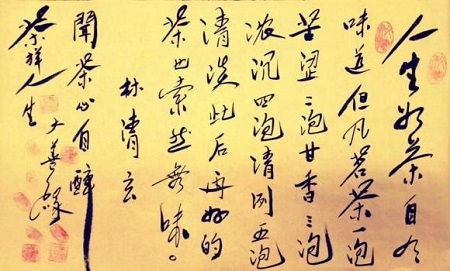 人生如茶自有
味道但凡茗茶一泡
苦涩二泡甘香三泡
浓沉四泡清冽五泡
清淡此后再好的
茶也索然无味。
林清玄
闻茶心自醉
人生